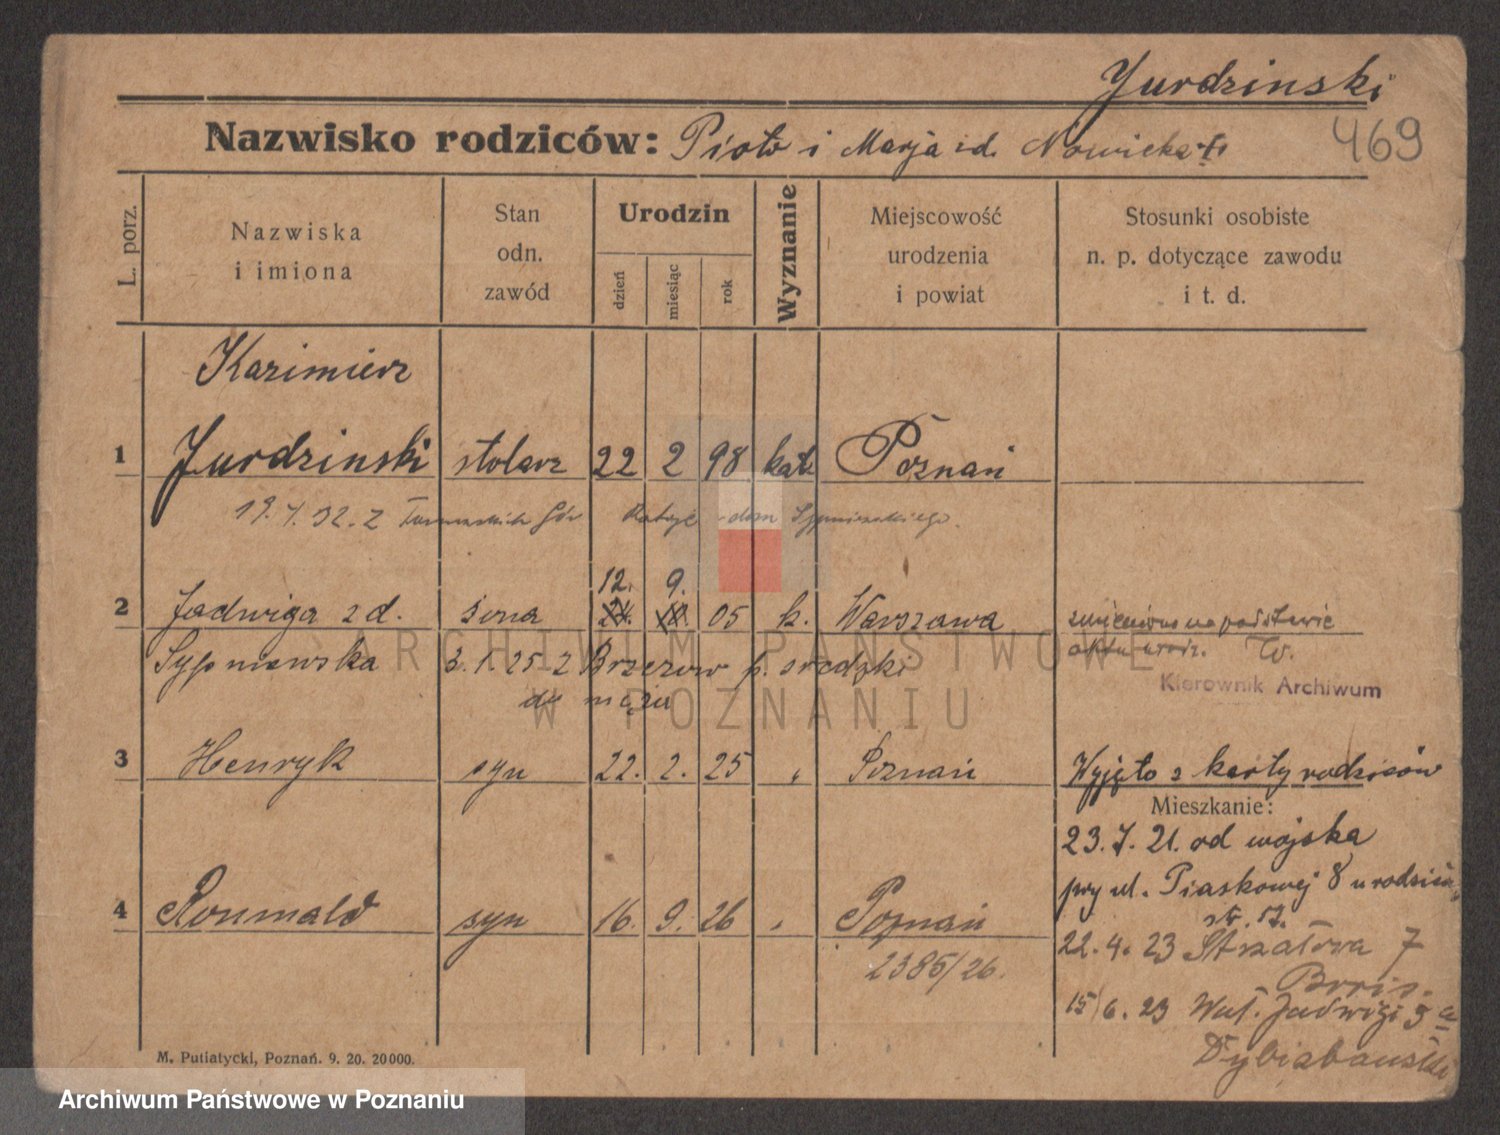 Jurdzinski
Nazwisko rodziców: Piotr i Marja zd. Nowicka
469
L. porz.
Nazwiska i imiona
Stan odn. zawód
Urodzin
dzień
miesiąc
rok
Wyznanie
Miejscowość urodzenia i powiat
Stosunki osobiste n. p. dotyczące zawodu i t. d.
Kazimierz
1 Jurdzinski stolarz 22 2 98 kat. Poznań
12. 9.
2 Jadwiga z d. żona 05 k. Warszawa zmieniono na podstawie
Sypniewska 3.1.25 z Brzezow p. sredzki aktu urodz.
do męża
Kierownik Archiwum
3 Henryk syn 22. 2. 25 Poznań Wyjęto z karty rodziców
Mieszkanie:
23.7.21. od wojska
przy ul. Piaskowej 8 u rodziców
4 Romuald syn 16. 9. 26 Poznań
22.4.23 Strzałowa 7
2385/26.
15/6.23 Wał. Jadwigi 5a
M. Putiatycki, Poznań. 9. 20. 20000.
ARCHIWUM PAŃSTWOWE
W POZNANIU
Archiwum Państwowe w Poznaniu